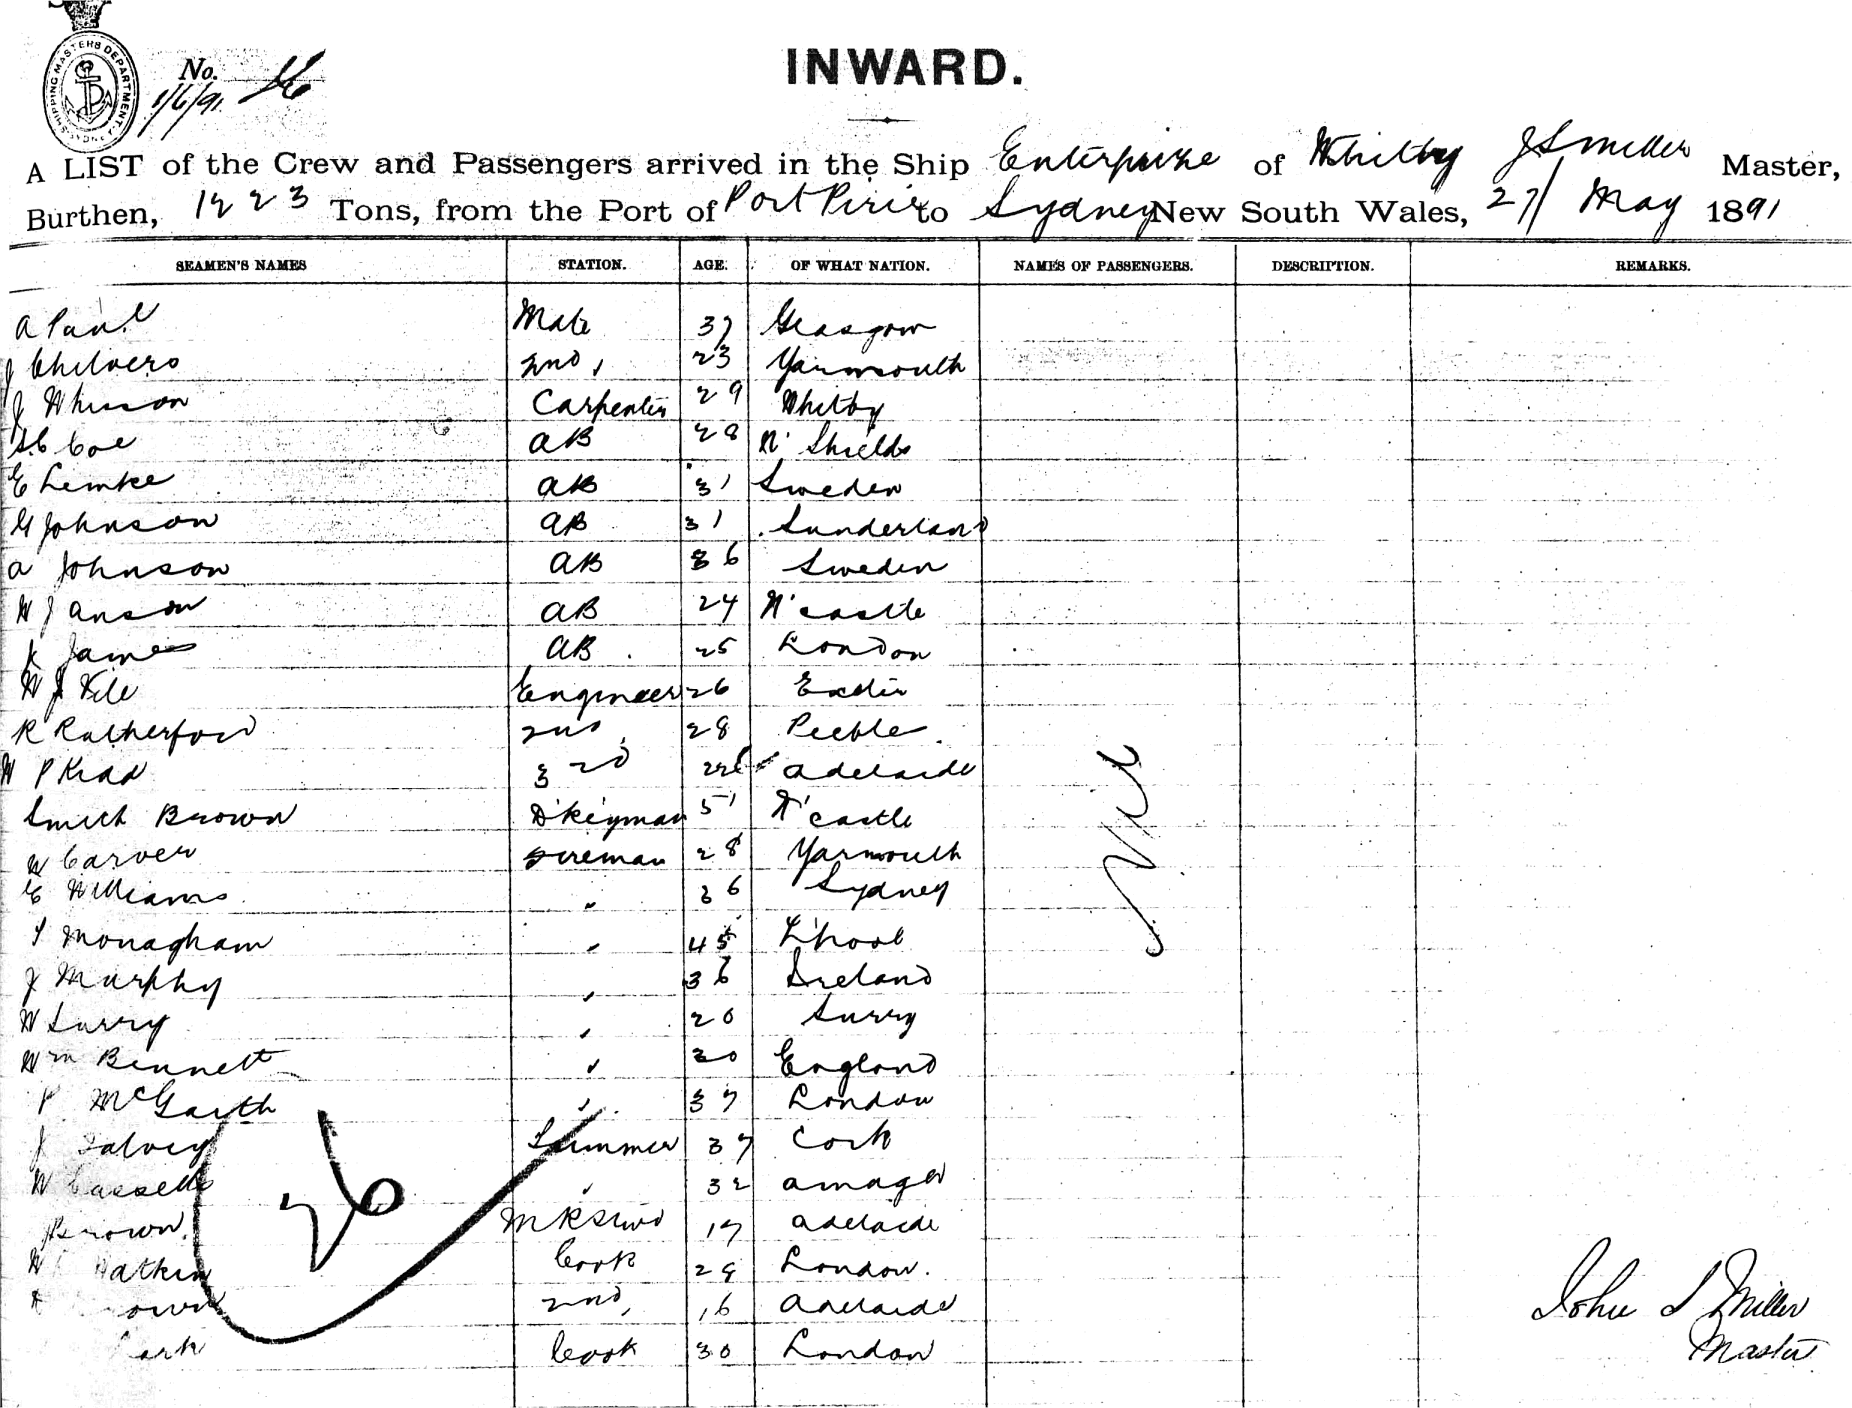 SHIPPING MASTERS DEPARTMENT
No. 26
1/6/91
INWARD.
A LIST of the Crew and Passengers arrived in the Ship Enterprise of Whitby J S Miller Master,
Burthen, 1223 Tons, from the Port of Port Pirie to Sydney New South Wales, 27/ May 1891
SEAMEN'S NAMES STATION. AGE. OF WHAT NATION. NAMES OF PASSENGERS. DESCRIPTION. REMARKS.
A Paul Mate 37 Glasgow
J Chilvers 2nd " 23 Yarmouth
J Whisson Carpenter 29 Whitby
Coe AB 28 N' Shields
E Lemke AB 31 Sweden
G Johnson AB 31 Sunderland
A Johnson AB 36 Sweden
W J Anson AB 24 N'castle
James AB 25 London
W J Engineer 26 Exeter
R Rutherford 2nd 28 Peeble
W P 3rd Adelaide
Smith Brown D'keyman 51 N'castle
W Carver Fireman 28 Yarmouth
E Williams " 36 Sydney
T Monagham " 45 L'pool
J Murphy " 36 Ireland
W Surry " 20 Surry
Wm Bennett " 30 England
P McGarth " 37 London
J Galvey Trimmer 37 Cork
W Cassells " 32
Brown M R Stwd 17 Adelaide
W Watkin Cook 29 London.
Brown 2nd, 16 Adelaide
Cook 30 London
Nil
26
John S Miller
Master